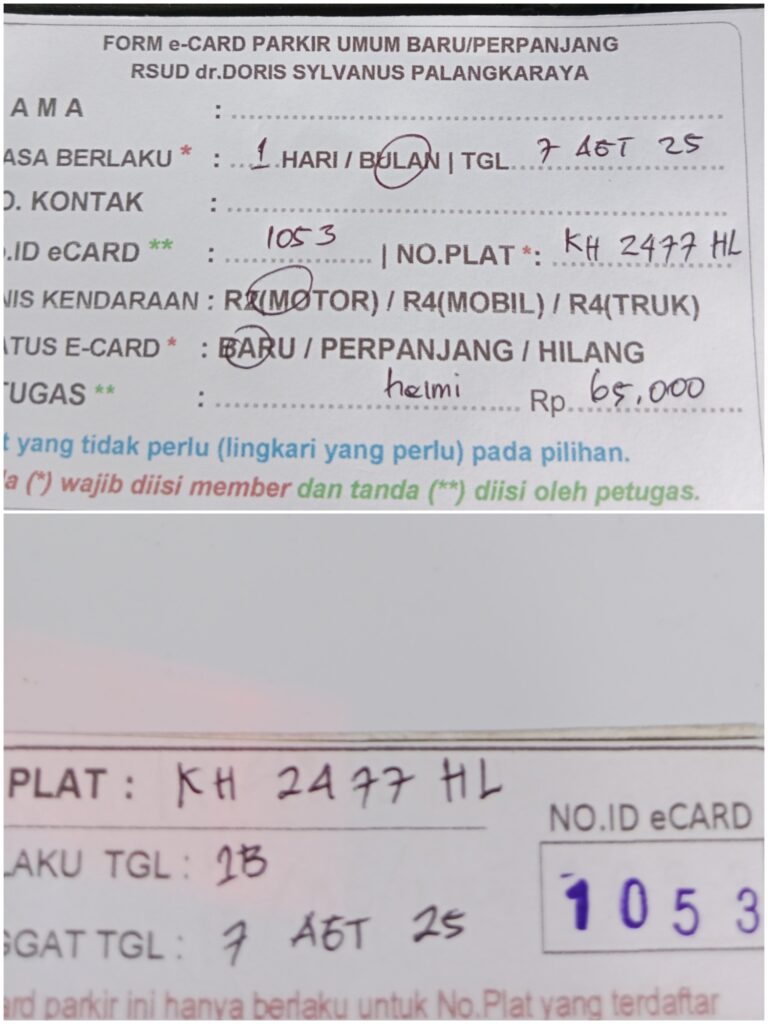 FORM e-CARD PARKIR UMUM BARU/PERPANJANG
RSUD dr.DORIS SYLVANUS PALANGKARAYA
AMA : ........
ASA BERLAKU * : 1 HARI / BULAN | TGL. 7 AGT 25
O. KONTAK : ........
.ID eCARD ** : 1053 | NO.PLAT *: KH 2477 HL
NIS KENDARAAN : R2(MOTOR) / R4(MOBIL) / R4(TRUK)
ATUS E-CARD * : BARU / PERPANJANG / HILANG
TUGAS ** : helmi Rp. 65,000
t yang tidak perlu (lingkari yang perlu) pada pilihan.
da (*) wajib diisi member dan tanda (**) diisi oleh petugas.
PLAT : KH 2477 HL
NO.ID eCARD
LAKU TGL : 1B
1053
GGAT TGL : 7 AGT 25
ard parkir ini hanya berlaku untuk No.Plat yang terdaftar